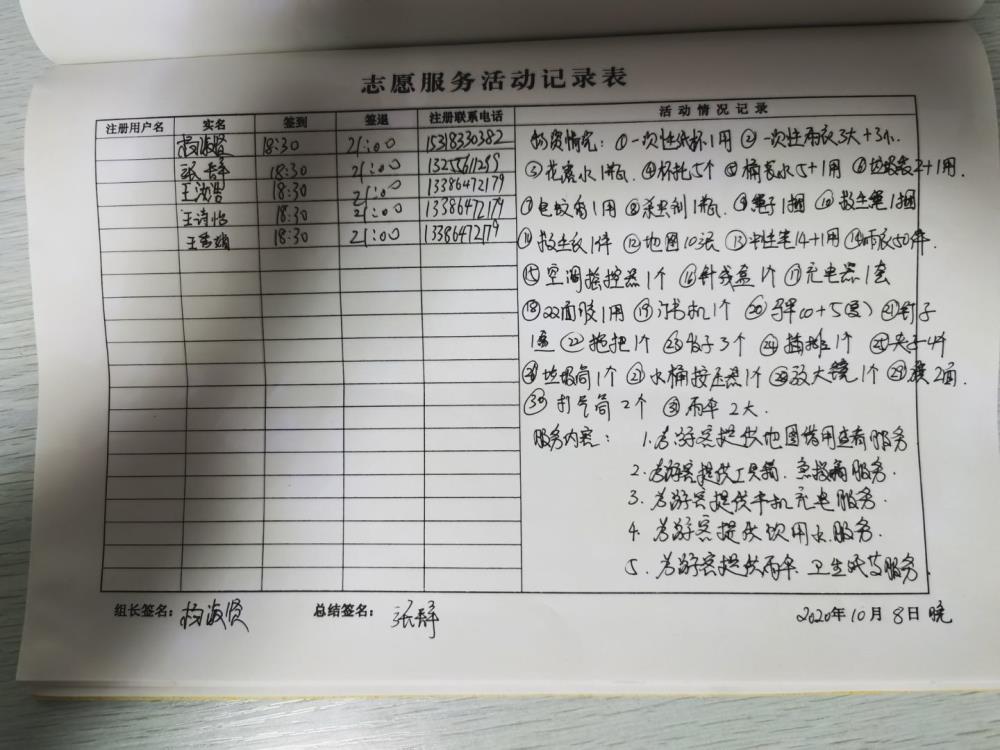 志愿服务活动记录表
注册用户名 实名 签到 签退 注册联系电话 活动情况记录
杨海贤 18:30 21:00 15318330382
张静 18:30 21:00 13255611259
王浩 18:30 21:00 13386472179
王诗怡 18:30 21:00 13386472179
王 18:30 21:00 13386472179
物资情况：①一次性纸杯1用 ②一次性雨衣3大+3小
③花露水1瓶 ④杯托5个 ⑤桶装水5+1用 ⑥垃圾袋2+1用
⑦电蚊香1用 ⑧杀虫剂1瓶 ⑨绳子1捆 ⑩救生绳1捆
⑪救生衣1件 ⑫地图10张 ⑬中性笔14+1用 ⑭雨衣50件
⑮空调摇控器1个 ⑯针线盒1个 ⑰充电器1套
⑱双面胶1用 ⑲订书机1个 ⑳ ㉑钉子
1盒 ㉒拖把1个 ㉓ 子3个 ㉔插排1个 ㉕夹子4个
㉖垃圾筒1个 ㉗水桶按压器1个 ㉘放大镜1个 ㉙旗2面
㉚打气筒2个 ㉛雨伞2大
服务内容： 1.为游客提供地图借用查看服务
2.为游客提供工具箱、急救箱服务.
3.为游客提供手机充电服务.
4.为游客提供饮用水服务.
5.为游客提供雨伞、卫生纸等服务
组长签名：杨海贤 总结签名：张静 2020年10月8日 晚